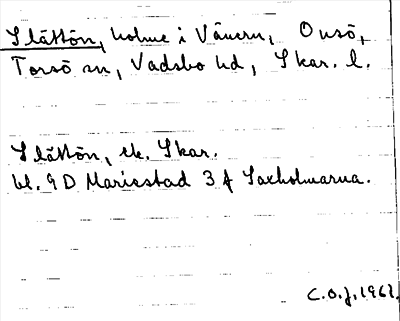 Slättön, holme i Vänern, Onsö,
Torsö sn, Vadsbo hd, Skar. l.
Slättön, ek. Skar.
bl. 9 D Mariestad 3 f Saxholmarna.
C.O.J. 1962.